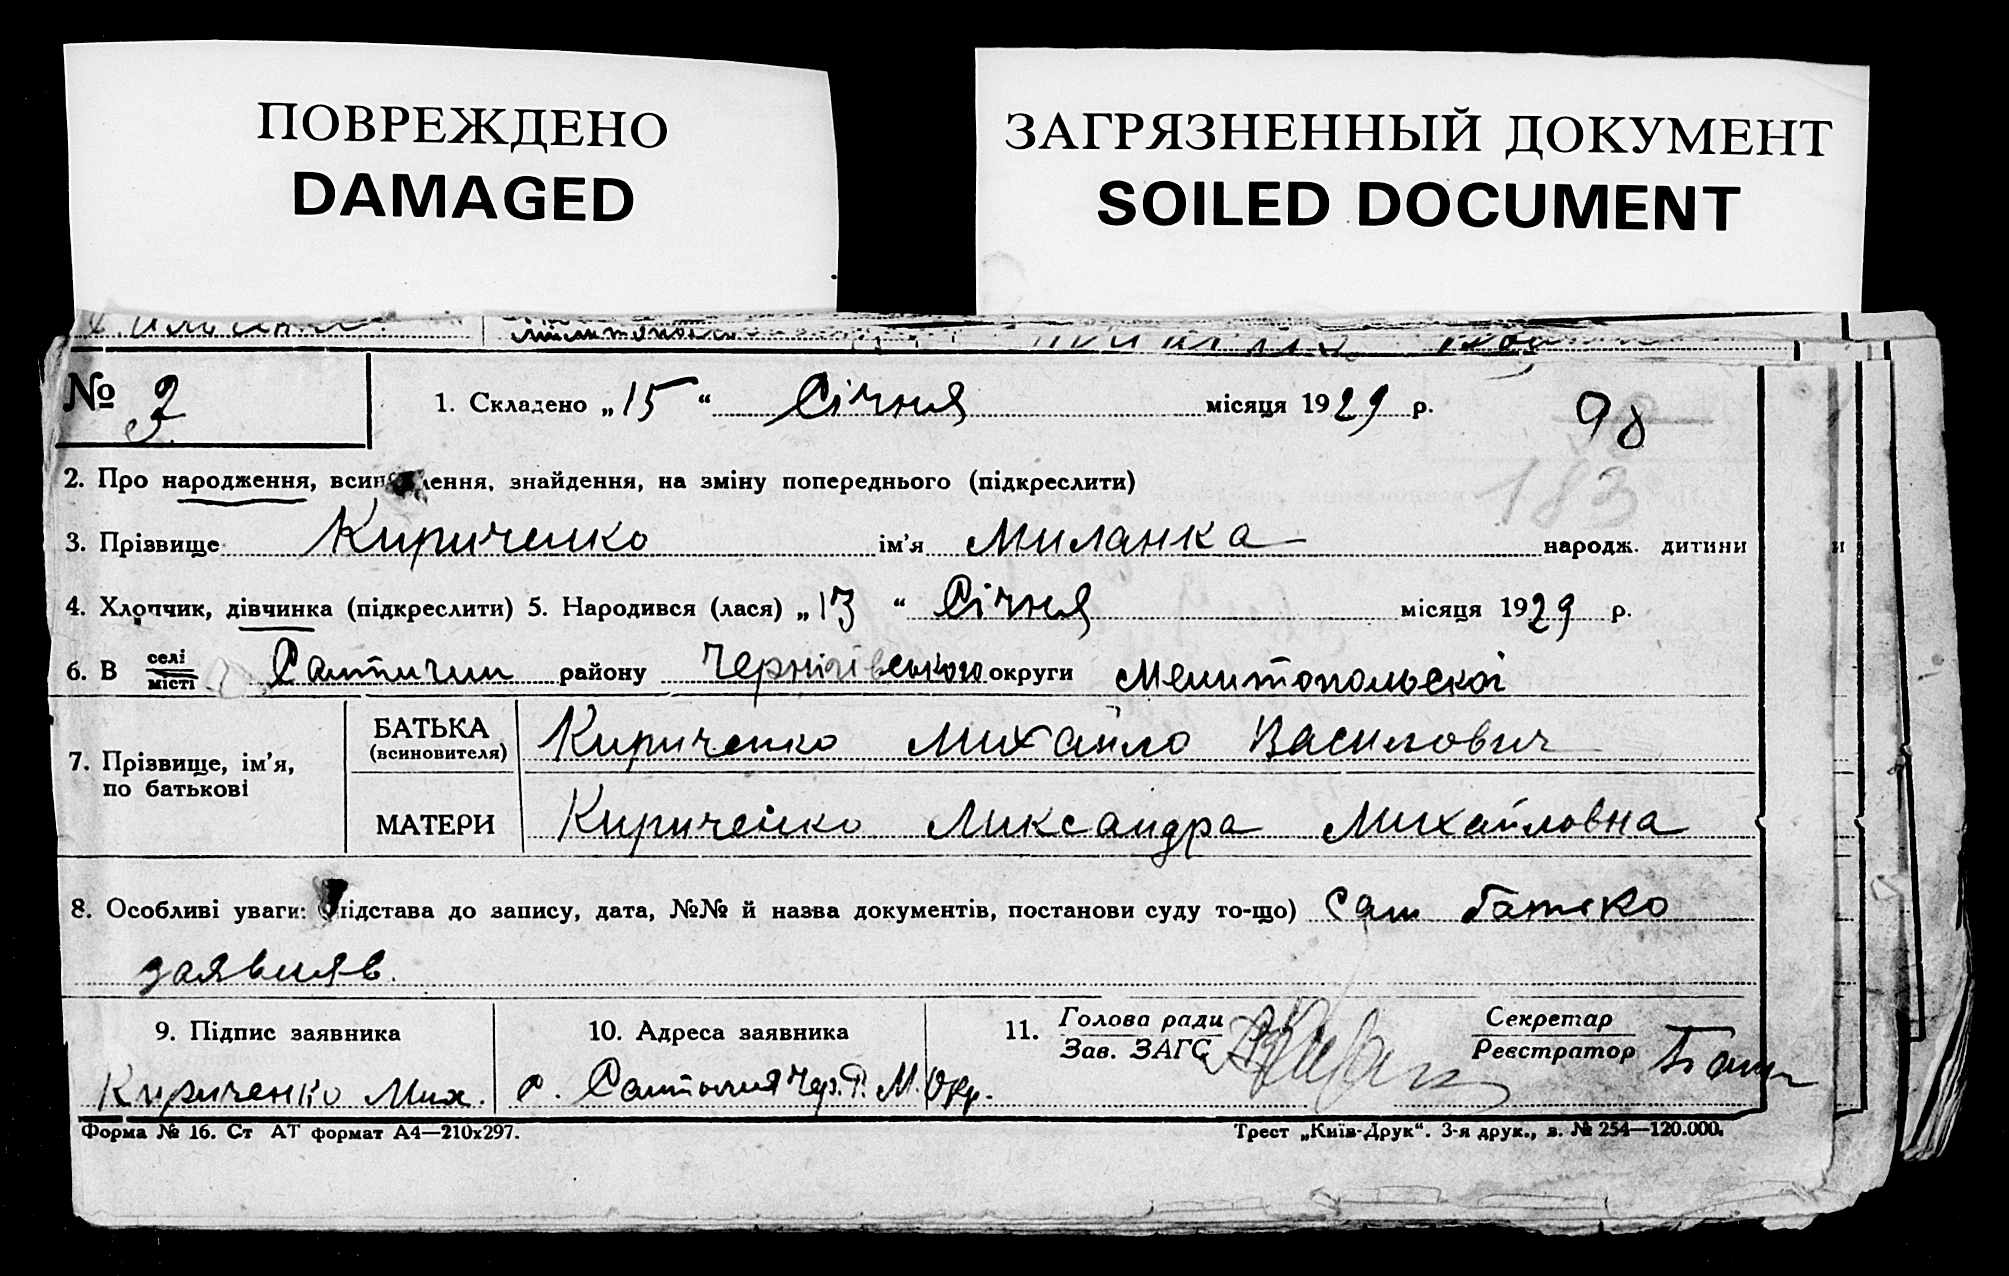 ПОВРЕЖДЕНО
DAMAGED
ЗАГРЯЗНЕННЫЙ ДОКУМЕНТ
SOILED DOCUMENT
№ 1. Складено „15“ Січня місяця 1929 р. 98
183
2. Про народження, всин лення, знайдення, на зміну попереднього (підкреслити)
3. Прізвище Кириченко ім'я Миланка народж. дитини
4. Хлопчик, дівчинка (підкреслити) 5. Народився (лася) „13“ Січня місяця 1929 р.
6. В селі
місті
району Чернігівського округи Мелитопольскої
7. Прізвище, ім'я,
по батькові
БАТЬКА
(всиновителя)
Кириченко Михайло Василович
МАТЕРИ Кириченко Лиександра Михайловна
8. Особливі уваги: підстава до запису, дата, №№ й назва документів, постанови суду то-що) сам батько
заявляв.
9. Підпис заявника
Кириченко Мих.
10. Адреса заявника
с. Чер. Р. М. Окр.
11. Голова ради
Зав. ЗАГС
Секретар
Реєстратор
Форма № 16. Ст АТ формат А4—210x297.
Трест „Київ-Друк“. 3-я друк., з. № 254—120.000.